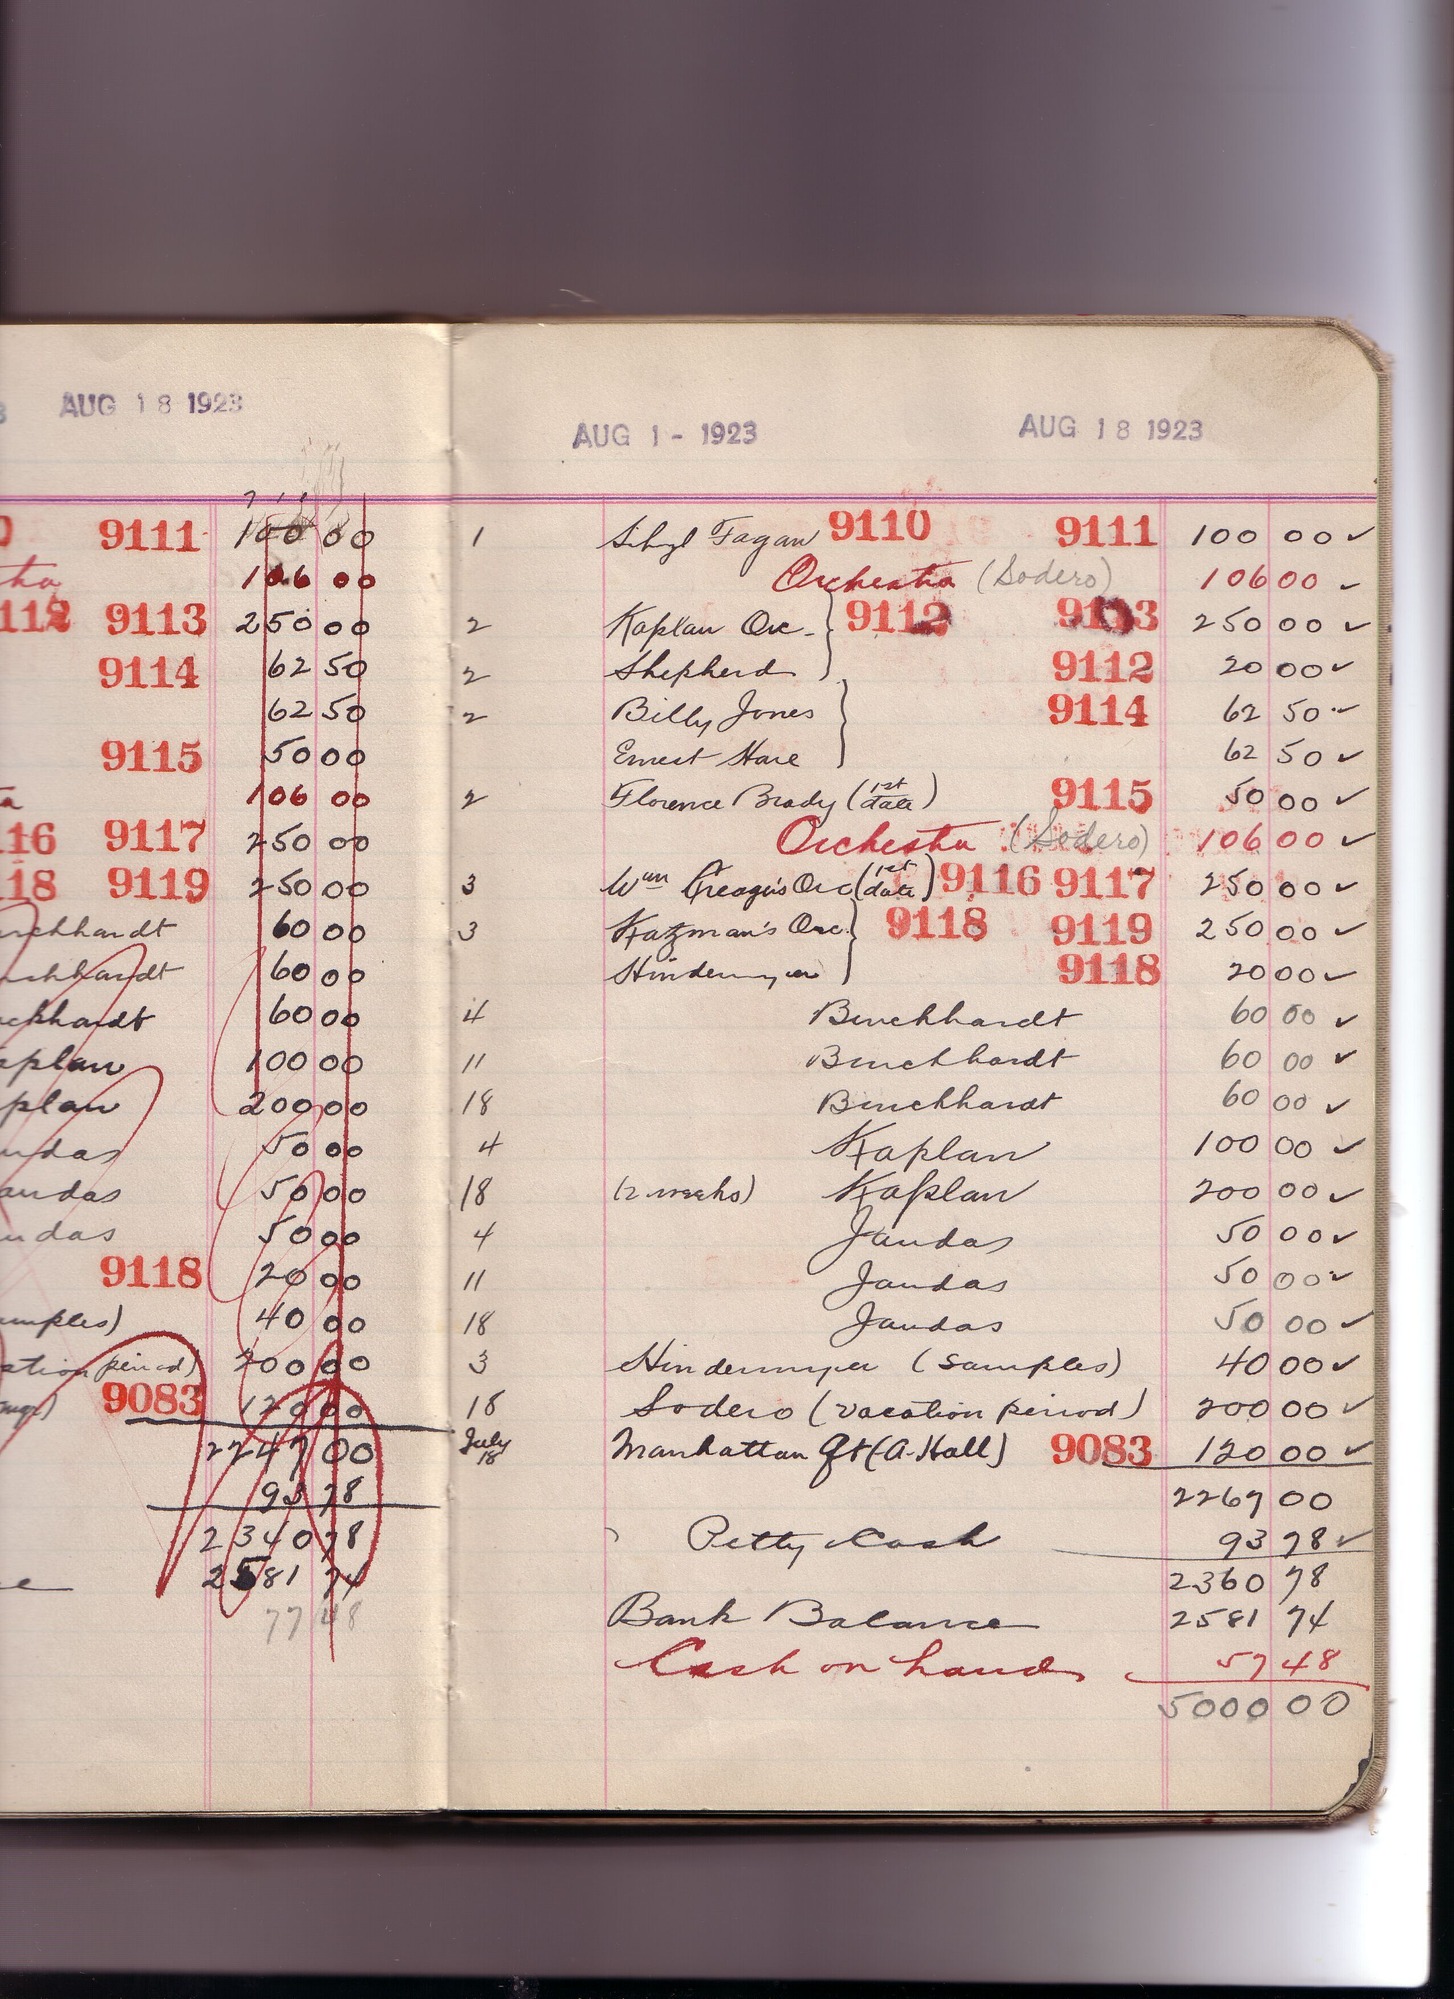 AUG 18 1923
9111 100 00
106 00
9113 250 00
9114 62 50
62 50
9115 50 00
106 00
116 9117 250 00
118 9119 250 00
60 00
60 00
60 00
100 00
200 00
50 00
50 00
50 00
9118 20 00
40 00
period) 200 00
9083 120 00
2247 00
93 78
2340 78
2581 74
77 48
AUG 1 - 1923 AUG 18 1923
1 Sibyl Fagan 9110 9111 100 00 ✓
Orchestra (Sodero) 106 00 ✓
2 Kaplan Orc. 9112 9113 250 00 ✓
2 Shepherd 9112 20 00 ✓
2 Billy Jones 9114 62 50 ✓
Ernest Hare 62 50 ✓
2 Florence Brady (1st date) 9115 50 00 ✓
Orchestra (Sodero) 106 00 ✓
3 Wm Creager's Orc (1st date) 9116 9117 250 00 ✓
3 Katzman's Orc. 9118 9119 250 00 ✓
Hindermyer 9118 20 00 ✓
4 Burckhardt 60 00 ✓
11 Burckhardt 60 00 ✓
18 Burckhardt 60 00 ✓
4 Kaplan 100 00 ✓
18 (2 weeks) Kaplan 200 00 ✓
4 Jaudas 50 00 ✓
11 Jaudas 50 00 ✓
18 Jaudas 50 00 ✓
3 Hindermyer (samples) 40 00 ✓
18 Sodero (vacation period) 200 00 ✓
July 18 Manhattan Qt (A. Hall) 9083 120 00 ✓
2267 00
Petty Cash 93 78 ✓
2360 78
Bank Balance 2581 74
Cash on hand 57 48
5000 00